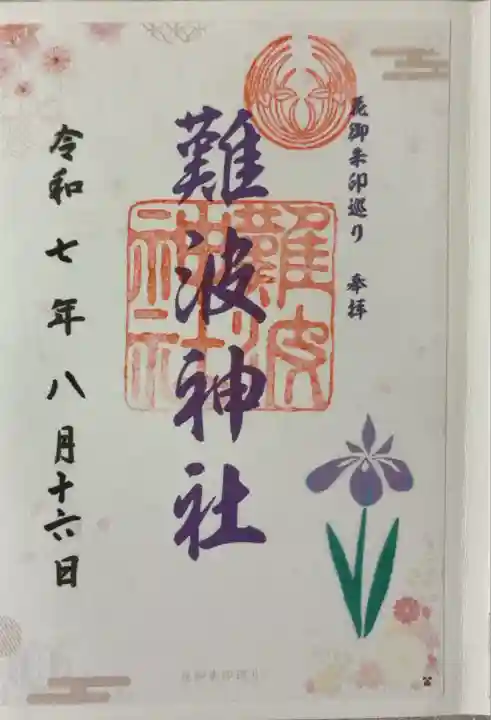 花御朱印巡り 奉拝
難波神社
難波
神社
令和七年八月十六日